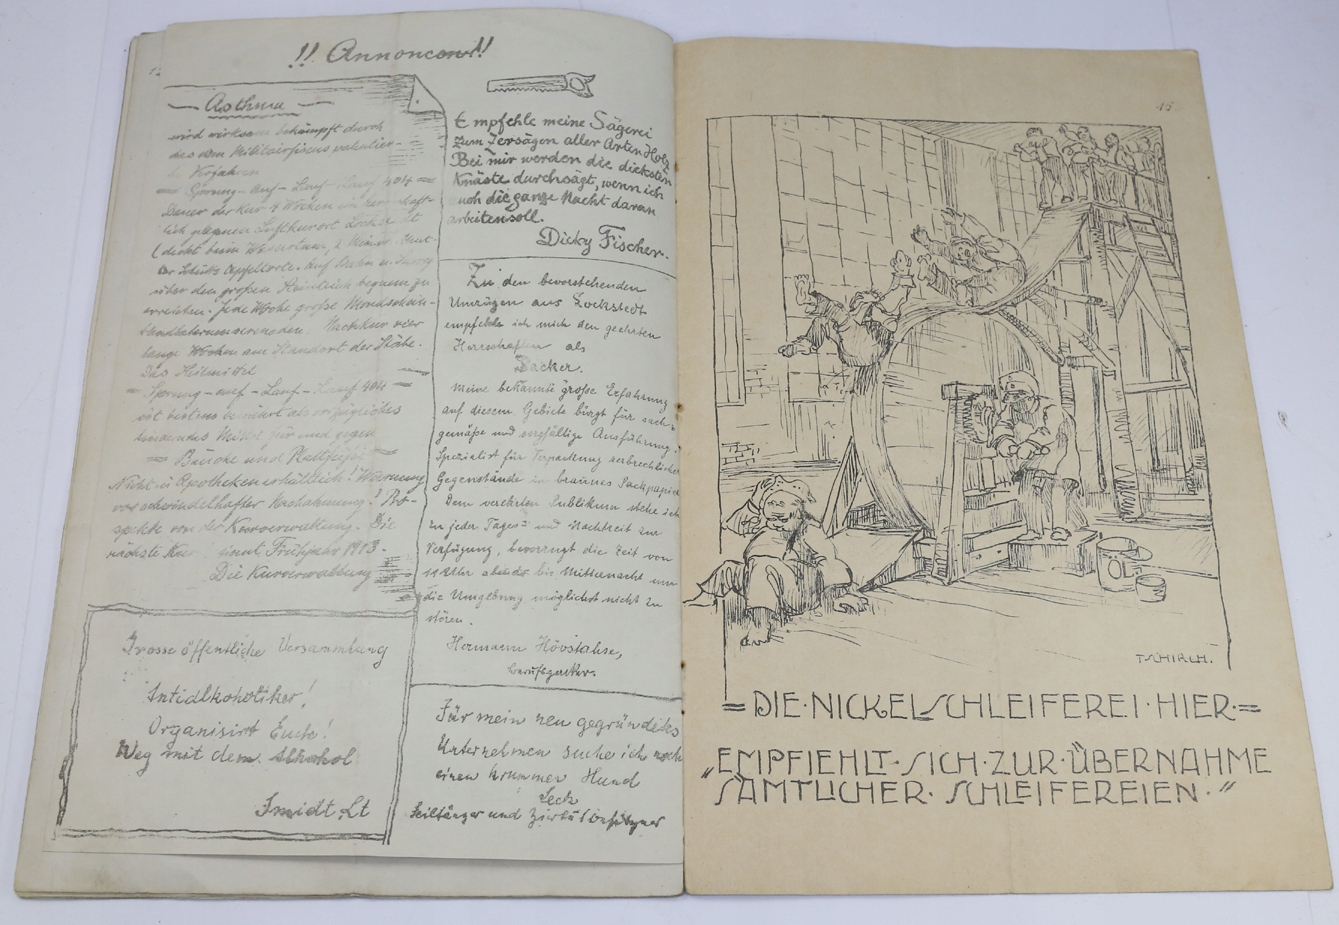 !! Annoncen!!
Asthma
wird wirksam bekämpft durch
das vom Militairfiscus
Vorjahren
= Sprung-auf-Lauf-Lauf 404 =
Dauer der Kur 4 Wochen in der
Luftkurort Lockstedt
(dicht beim
Apfeltorte. Auf Bahn u.
über den großen bequem zu
erreichen. Jede Woche große
Nachkur vier
lange Wochen am Standort der Stäbe.
Das Heilmittel
= Sprung-auf-Lauf-Lauf 404 =
ist bestens bewährt als vorzügliches
linderndes Mittel für und gegen
= Bäuche und Plattfüße =
Nicht in Apotheken erhältlich! Warnung
vor schwindelhafter Nachahmung! Pro-
spekte von der Kurverwaltung. Die
nächste Kur Frühjahr 1913.
Die Kurverwaltung
Grosse öffentliche Versammlung
Antialkoholiker!
Organisirt Euch!
Weg mit dem Alkohol
Smidt Lt
Empfehle meine Sägerei
zum Zersägen aller Arten Holz
Bei mir werden die dicksten
Knäste durchsägt, wenn ich
auch die ganze Nacht daran
arbeiten soll.
Dicky Fischer.
Zu den bevorstehenden
Umzügen aus Lockstedt
empfehle ich mich den geehrten
Herrschaften als
Packer.
Meine bekannte große Erfahrung
auf diesem Gebiete bürgt für sach-
gemäße und sorgfältige Ausführung.
Spezialist für Verpackung zerbrechlicher
Gegenstände in braunes Packpapier
Dem verehrten Publikum stehe ich
zu jeder Tages- und Nachtzeit zur
Verfügung, bevorzugt die Zeit von
11 Uhr abends bis Mitternacht um
die Umgebung möglichst nicht zu
stören.
Hermann Hövstahse,
Berufspacker.
Für mein neu gegründetes
Unternehmen suche ich noch
einen krummen Hund
Leck
Seiltänzer und
15
TSCHIRCH.
=DIE·NICKELSCHLEIFEREI·HIER·=
„EMPFIEHLT·SICH·ZUR·ÜBERNAHME
SÄMTLICHER·SCHLEIFEREIEN·"